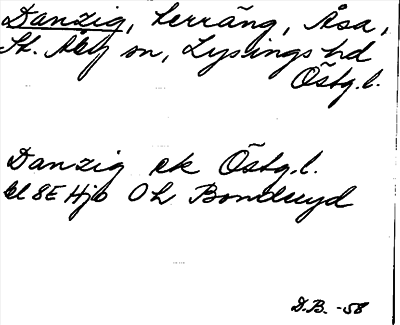 Danzig, terräng, Åsa,
St. Åby sn, Lysings hd
Östg.l.
Danzig ek Östg.l.
bl 8E Hjo Oh Bonderyd
D.B. -58